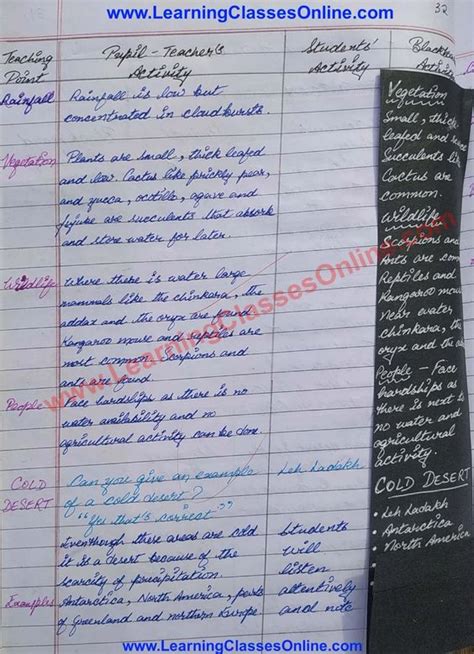 www.LearningClassesOnline.com
32
Teaching Point
Pupil-Teacher's Activity
Students' Activity
Activity
Rainfall
Rainfall is low but
concentrated in cloudbursts.
Vegetation
Plants are small, thick leafed
and low. Cactus like prickly pear,
and yucca, ocotillo, agave and
are succulents that absorb
and store water for later.
Wildlife
Where there is water large
mammals like the chinkara, the
addax and the oryx are found
Kangaroo mouse and reptiles are
most common. Scorpions and
ants are found.
People
Face hardships as there is no
water availability and no
agricultural activity can be done.
COLD DESERT
Can you give an example
of a cold desert?
"Yes that's correct."
Leh Ladakh
Eventhough these areas are cold
it is a desert because of the
scarcity of precipitation
Students
will
listen
attentively
and note
Examples
Antarctica, North America, parts
of Greenland and northern Europe
Vegetation
Small, thick
leafed and
Succulents like
Cactus are
common.
Wildlife
Scorpions and
Ants are com
Reptiles and
Kangaroo mou
near water
chinkara, the
oryx and the
People - Face
hardships as
there is next to
no water and
agricultural
activity.
COLD DESERT
• Leh Ladakh
• Antarctica
• North America
www.LearningClassesOnline.com
www.LearningClassesOnline.com